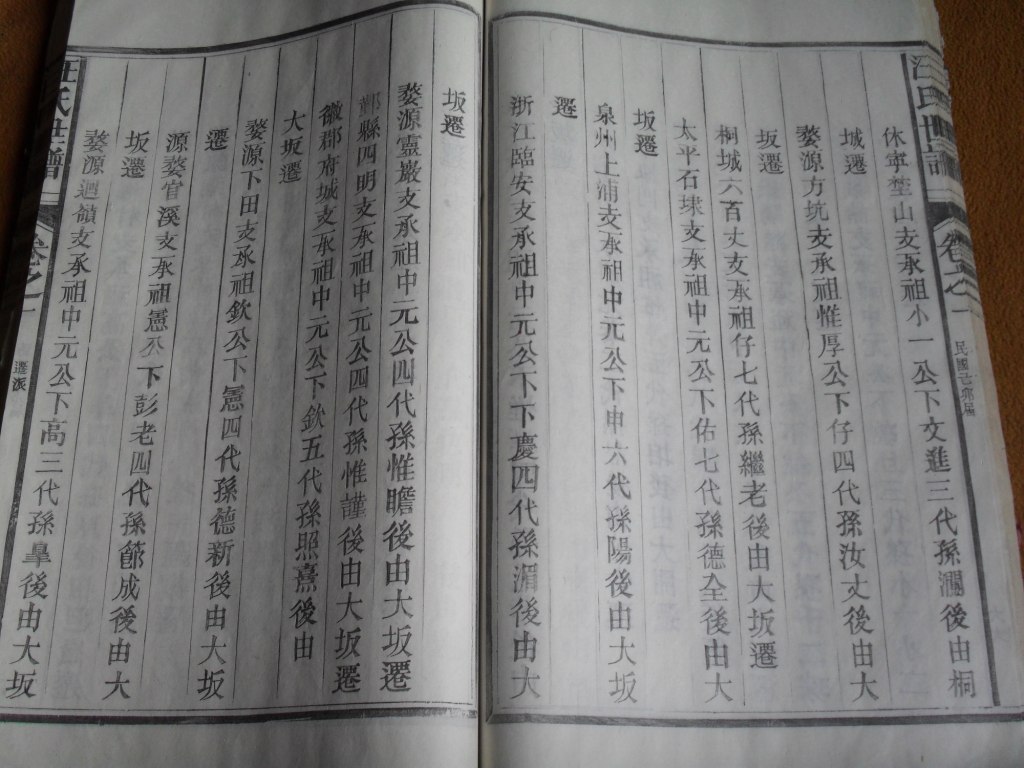 汪氏世譜
卷之一
民國
休寧楚山支承祖小一公下文進三代孫瀾後由桐
城遷
婺源方坑支承祖惟厚公下仔四代孫汝丈後由大
坂遷
桐城六百丈支承祖仔七代孫繼老後由大坂遷
太平石埭支承祖中元公下佑七代孫德全後由大
坂遷
泉州上浦支承祖中元公下申六代孫陽後由大坂
遷
浙江臨安支承祖中元公下下慶四代孫湄後由大
坂遷
婺源靈巖支承祖中元公四代孫惟瞻後由大坂遷
鄞縣四明支承祖中元公四代孫惟謹後由大坂遷
徽郡府城支承祖中元公下欽五代孫照熹後由
大坂遷
婺源下田支承祖欽公下憲四代孫德新後由大坂
遷
源婺官溪支承祖憲公下彭老四代孫節成後由大
坂遷
婺源迴嶺支承祖中元公下高三代孫皞後由大坂
汪氏世譜
卷之一
遷派